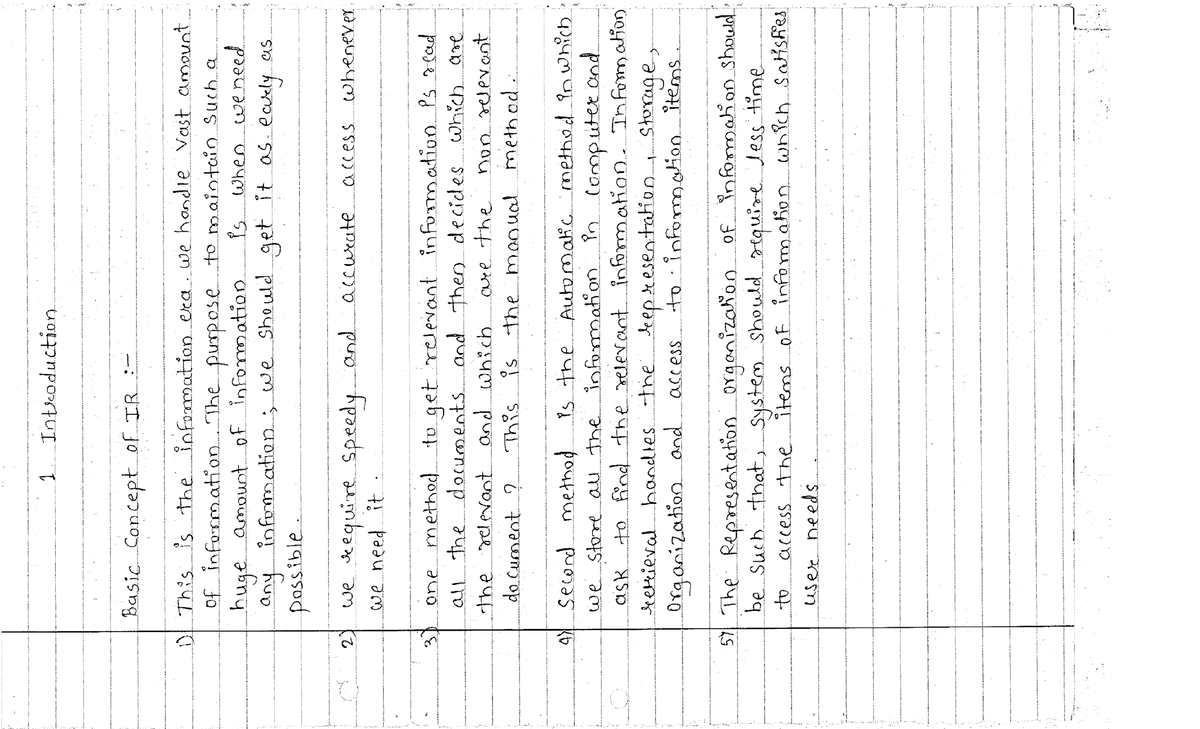 1 Introduction
Basic Concept of IR :-
1) This is the information era. we handle vast amount
of information. The purpose to maintain such a
huge amount of information is when we need
any information; we should get it as early as
possible.
2) we require speedy and accurate access whenever
we need it.
3) one method to get relevant information is read
all the documents and then decides which are
the relevant and which are the non relevant
document? This is the manual method.
4) Second method is the Automatic method in which
we store all the information in computer and
ask to find the relevant information. Information
retrieval handles the representation, storage,
Organization and access to information items.
5) The Representation organization of information should
be such that, system should require less time
to access the items of information which satisfies
user needs.